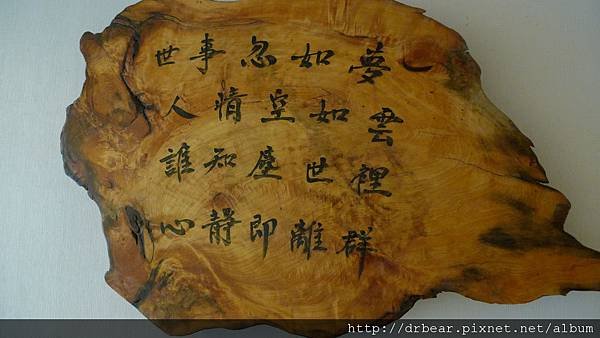 世事忽如夢
人情空如雲
誰知塵世裡
心靜即離群
http://drbear.pixnet.net/album